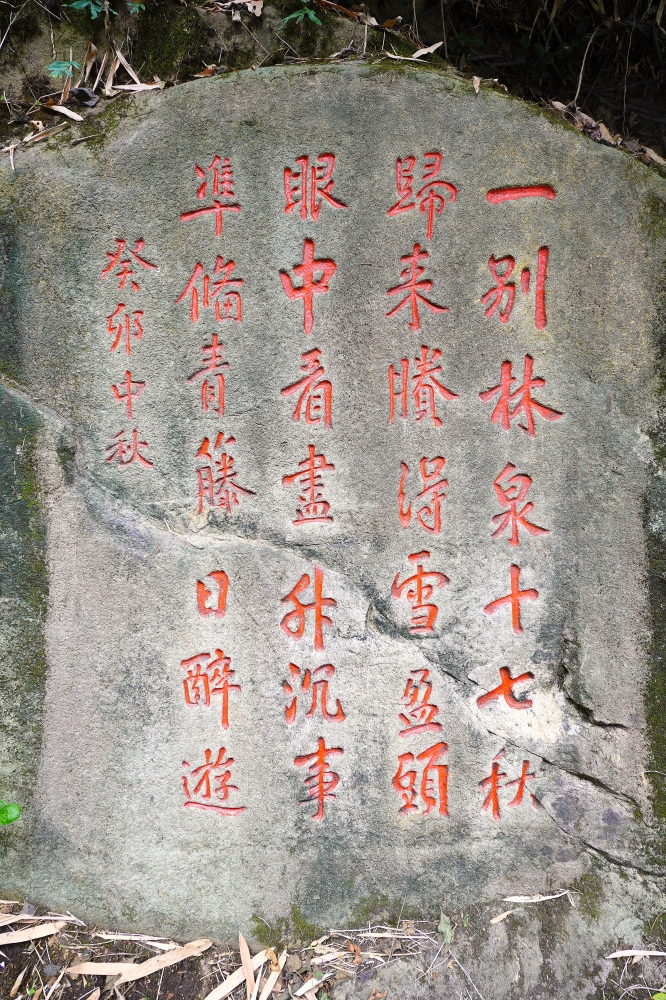 一別林泉十七秋
歸来賸得雪盈頭
眼中看盡升沉事
準俻青籐日醉遊
癸卯中秋